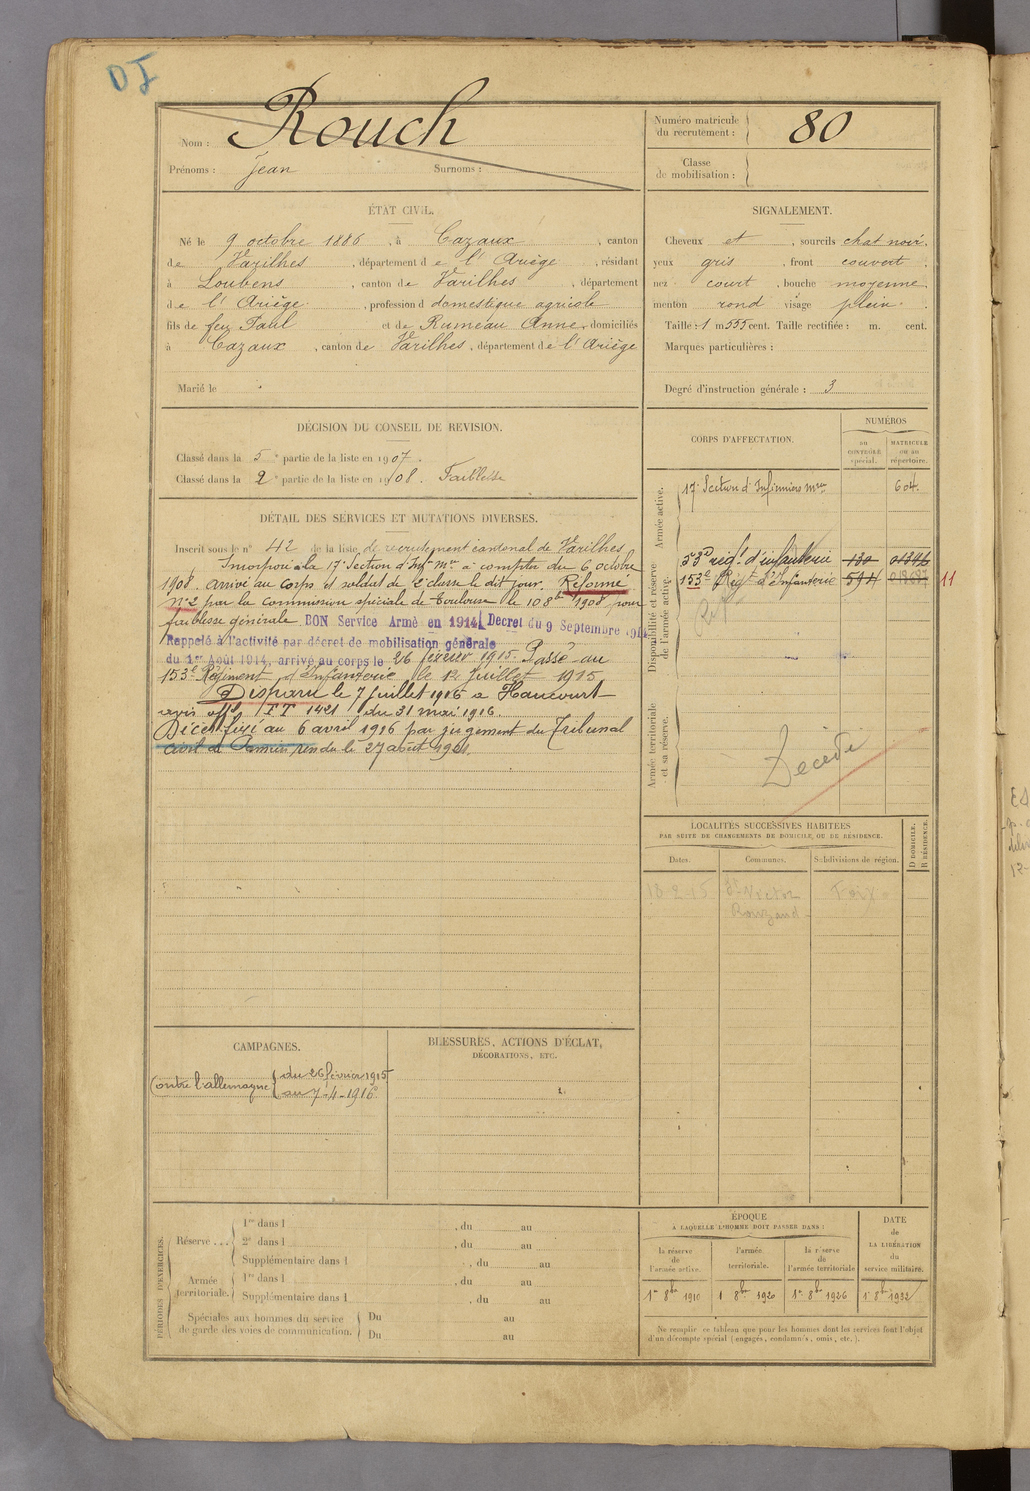 DJ
Nom : Rouch
Prénoms : Jean Surnoms :
Numéro matricule du recrutement : 80
Classe de mobilisation :
ÉTAT CIVIL.
Né le 9 octobre 1886, à Cazaux, canton
de Varilhes, département de l'Ariège, résidant
à Loubens, canton de Varilhes, département
de l'Ariège, profession d domestique agricole
fils de feu Paul et de Rumeau Anne, domiciliés
à Cazaux, canton de Varilhes, département de l'Ariège
Marié le
SIGNALEMENT.
Cheveux et, sourcils chat noir.
yeux gris, front couvert
nez court, bouche moyenne
menton rond visage plein.
Taille : 1 m 555 cent. Taille rectifiée : m. cent.
Marques particulières :
Degré d'instruction générale : 3
DÉCISION DU CONSEIL DE REVISION.
Classé dans la 5e partie de la liste en 1907.
Classé dans la 2e partie de la liste en 1908. Faiblesse
DÉTAIL DES SERVICES ET MUTATIONS DIVERSES.
Inscrit sous le n° 42 de la liste de recrutement cantonal de Varilhes
Incorporé à la 17e Section d'Infirs Mres à compter du 6 octobre
1908. arrivé au corps et soldat de 2e classe le dit jour. Réformé
n° 2 par la commission spéciale de Toulouse le 10 8bre 1908 pour
faiblesse générale. BON Service Armé en 1914 Decret du 9 Septembre 1914
Rappelé à l'activité par décret de mobilisation générale
du 1er Août 1914, arrivé au corps le 26 février 1915. Passé au
153e Régiment d'Infanterie le 12 juillet 1915
Disparu le 7 juillet 1916 à Haucourt
avis offel FT 1421 du 31 mai 1916.
Décès fixé au 6 avril 1916 par jugement du Tribunal
civil de Pamiers rendu le 27 août 1921.
CORPS D'AFFECTATION.
NUMÉROS
au CONTRÔLE spécial.
MATRICULE ou au répertoire.
Armée active.
17e Section d'Infirmiers Mres 604.
Disponibilité et réserve de l'armée active.
53e régt d'infanterie 130 01346
153e Régt d'Infanterie 11
Armée territoriale et sa réserve.
Décédé
LOCALITÉS SUCCESSIVES HABITÉES
PAR SUITE DE CHANGEMENTS DE DOMICILE, OU DE RÉSIDENCE.
Dates. Communes. Subdivisions de région. D DOMICILE. R RÉSIDENCE.
18-2-15 St Victor Foix
Rouzaud
CAMPAGNES.
Contre l'allemagne du 26 février 1915
au 7-4-1916
BLESSURES, ACTIONS D'ÉCLAT,
DÉCORATIONS, ETC.
PÉRIODES D'EXERCICES.
Réserve ... 1re dans l , du au
2e dans l , du au
Supplémentaire dans l , du au
Armée territoriale. 1re dans l , du au
Supplémentaire dans l , du au
Spéciales aux hommes du service de garde des voies de communication. Du au
Du au
ÉPOQUE
À LAQUELLE L'HOMME DOIT PASSER DANS :
la réserve de l'armée active.
l'armée territoriale.
la réserve de l'armée territoriale
DATE de LA LIBÉRATION du service militaire.
1er 8bre 1910 1 8bre 1920 1er 8bre 1926 1er 8bre 1932
Ne remplir ce tableau que pour les hommes dont les services font l'objet
d'un décompte spécial (engagés, condamnés, omis, etc.).